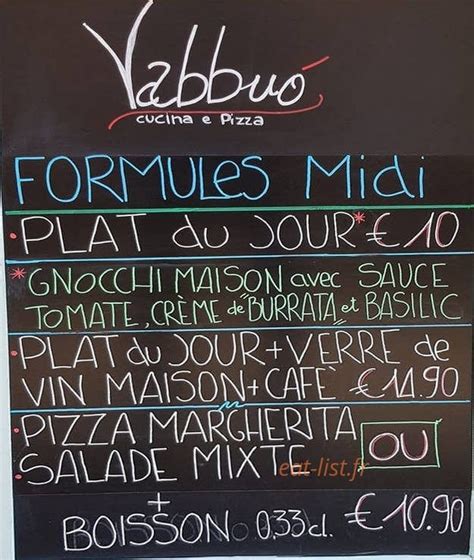 Vabbuó
cucina e Pizza
FORMULES Midi
• PLAT du JOUR* € 10
* GNOCCHI MAISON avec SAUCE
TOMATE, CRÈME de "BURRATA" et BASILIC
• PLAT du JOUR + VERRE de
VIN MAISON + CAFÈ € 14.90
• PIZZA MARGHERITA
OU
• SALADE MIXTE
eat-list.fr
+
BOISSON 0.33cl. € 10.90